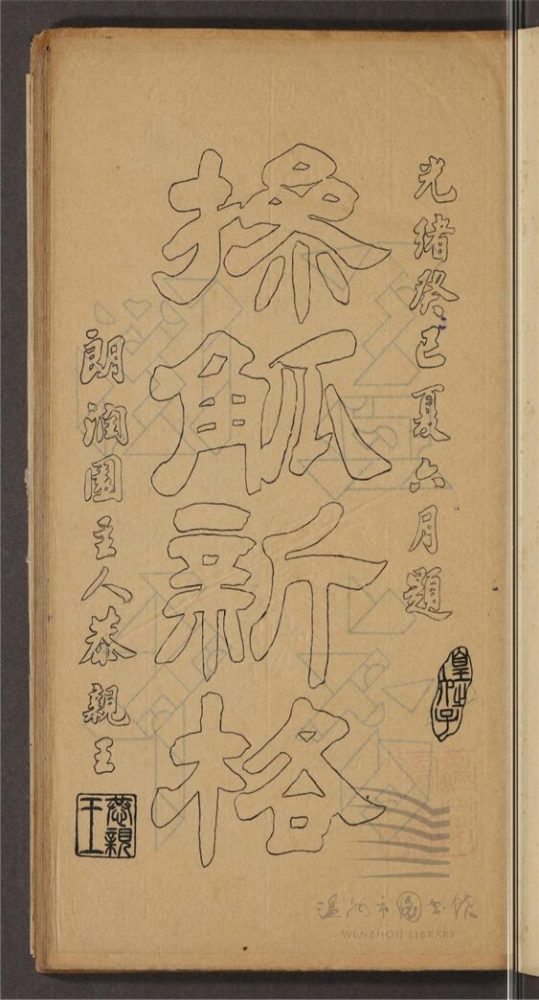 光緒癸巳夏六月題
皇六子
操觚新格
朗潤園主人恭親王
恭親王
溫州市圖書館
WENZHOU LIBRARY